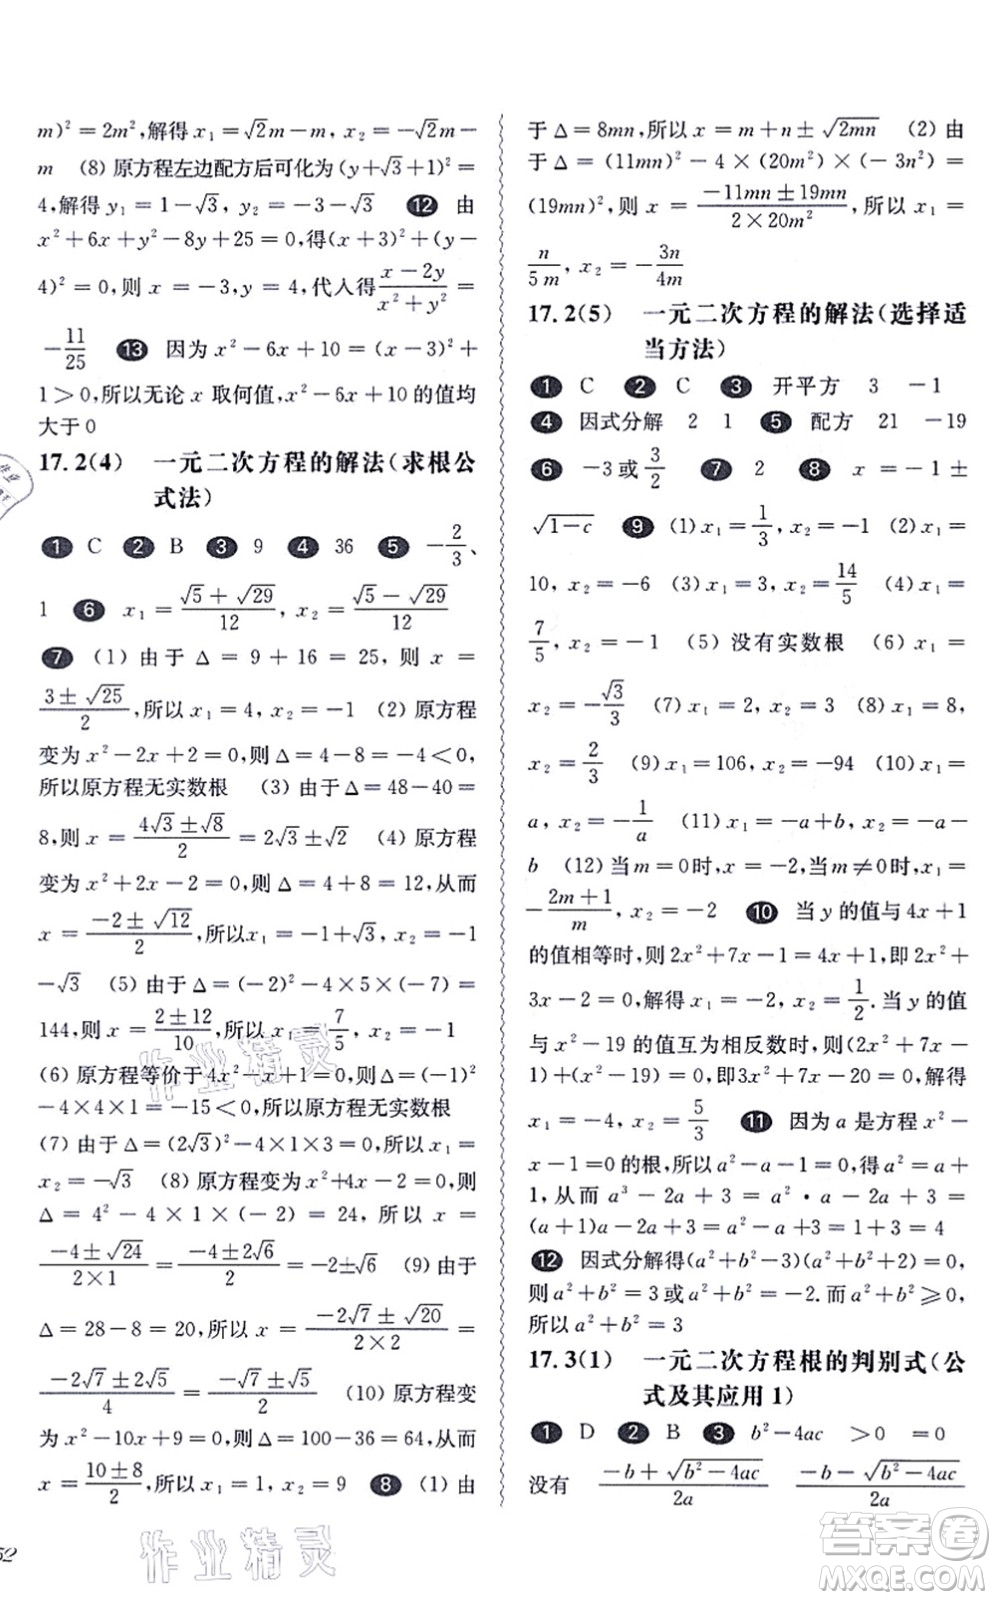 m)²=2m²,解得x₁=√2m-m, x₂=-√2m-
m (8) 原方程左边配方后可化为(y+√3+1)²=
4,解得y₁=1-√3, y₂=-3-√3 ⑫ 由
x²+6x+y²-8y+25=0,得(x+3)²+(y-
4)²=0,则x=-3,y=4,代入得(x-2y)/(x²+y²)=
-11/25 ⑬ 因为x²-6x+10=(x-3)²+
1>0,所以无论x取何值,x²-6x+10的值均
大于0
17.2(4) 一元二次方程的解法(求根公
式法)
① C ② B ③ 9 ④ 36 ⑤ -2/3、
1 ⑥ x₁=(√5+√29)/12, x₂=(√5-√29)/12
⑦ (1) 由于Δ=9+16=25, 则x=
(3±√25)/2,所以x₁=4, x₂=-1 (2) 原方程
变为x²-2x+2=0,则Δ=4-8=-4<0,
所以原方程无实数根 (3) 由于Δ=48-40=
8,则x=(4√3±√8)/2=2√3±√2 (4) 原方程
变为x²+2x-2=0,则Δ=4+8=12,从而
x=(-2±√12)/2,所以x₁=-1+√3, x₂=-1
-√3 (5) 由于Δ=(-2)²-4×5×(-7)=
144,则x=(2±12)/10,所以x₁=7/5, x₂=-1
(6) 原方程等价于4x²-x+1=0,则Δ=(-1)²
-4×4×1=-15<0,所以原方程无实数根
(7) 由于Δ=(2√3)²-4×1×3=0,所以x₁=
x₂=-√3 (8) 原方程变为x²+4x-2=0,则
Δ=4²-4×1×(-2)=24, 所以x=
(-4±√24)/(2×1)=(-4±2√6)/2=-2±√6 (9) 由于
Δ=28-8=20,所以x=(-2√7±√20)/(2×2)=
(-2√7±2√5)/4=(-√7±√5)/2 (10) 原方程变
为x²-10x+9=0,则Δ=100-36=64,从而
x=(10±8)/2,所以x₁=1, x₂=9 ⑧ (1) 由
52
于Δ=8mn,所以x=m+n±√2mn (2) 由
于Δ=(11mn)²-4×(20m²)×(-3n²)=
(19mn)², 则x=(-11mn±19mn)/(2×20m²), 所以x₁=
n/5m, x₂=-3n/4m
17.2(5) 一元二次方程的解法(选择适
当方法)
① C ② C ③ 开平方 3 -1
④ 因式分解 2 1 ⑤ 配方 21 -19
⑥ -3或3/2 ⑦ 2 ⑧ x=-1±
√1-c ⑨ (1) x₁=1/3, x₂=-1 (2) x₁=
10, x₂=-6 (3) x₁=3, x₂=14/5 (4) x₁=
7/5, x₂=-1 (5) 没有实数根 (6) x₁=
x₂=-√3/3 (7) x₁=2, x₂=3 (8) x₁=8,
x₂=2/3 (9) x₁=106, x₂=-94 (10) x₁=
a, x₂=-1/a (11) x₁=-a+b, x₂=-a-
b (12) 当m=0时,x=-2,当m≠0时,x₁=
-(2m+1)/m, x₂=-2 ⑩ 当y的值与4x+1
的值相等时,则2x²+7x-1=4x+1,即2x²+
3x-2=0,解得x₁=-2,x₂=1/2.当y的值
与x²-19的值互为相反数时,则(2x²+7x-
1)+(x²-19)=0,即3x²+7x-20=0,解得
x₁=-4, x₂=5/3 ⑪ 因为a是方程x²-
x-1=0的根,所以a²-a-1=0,得a²=a+
1, 从而a³-2a+3=a²·a-2a+3=
(a+1)a-2a+3=a²-a+3=1+3=4
⑫ 因式分解得(a²+b²-3)(a²+b²+2)=0,
则a²+b²=3或a²+b²=-2.而a²+b²⩾0,
所以a²+b²=3
17.3(1) 一元二次方程根的判别式(公
式及其应用1)
① D ② B ③ b²-4ac >0 =0
没有 (-b+√(b²-4ac))/2a (-b-√(b²-4ac))/2a
作业精灵
作业精灵
答案圈
MXQE.COM